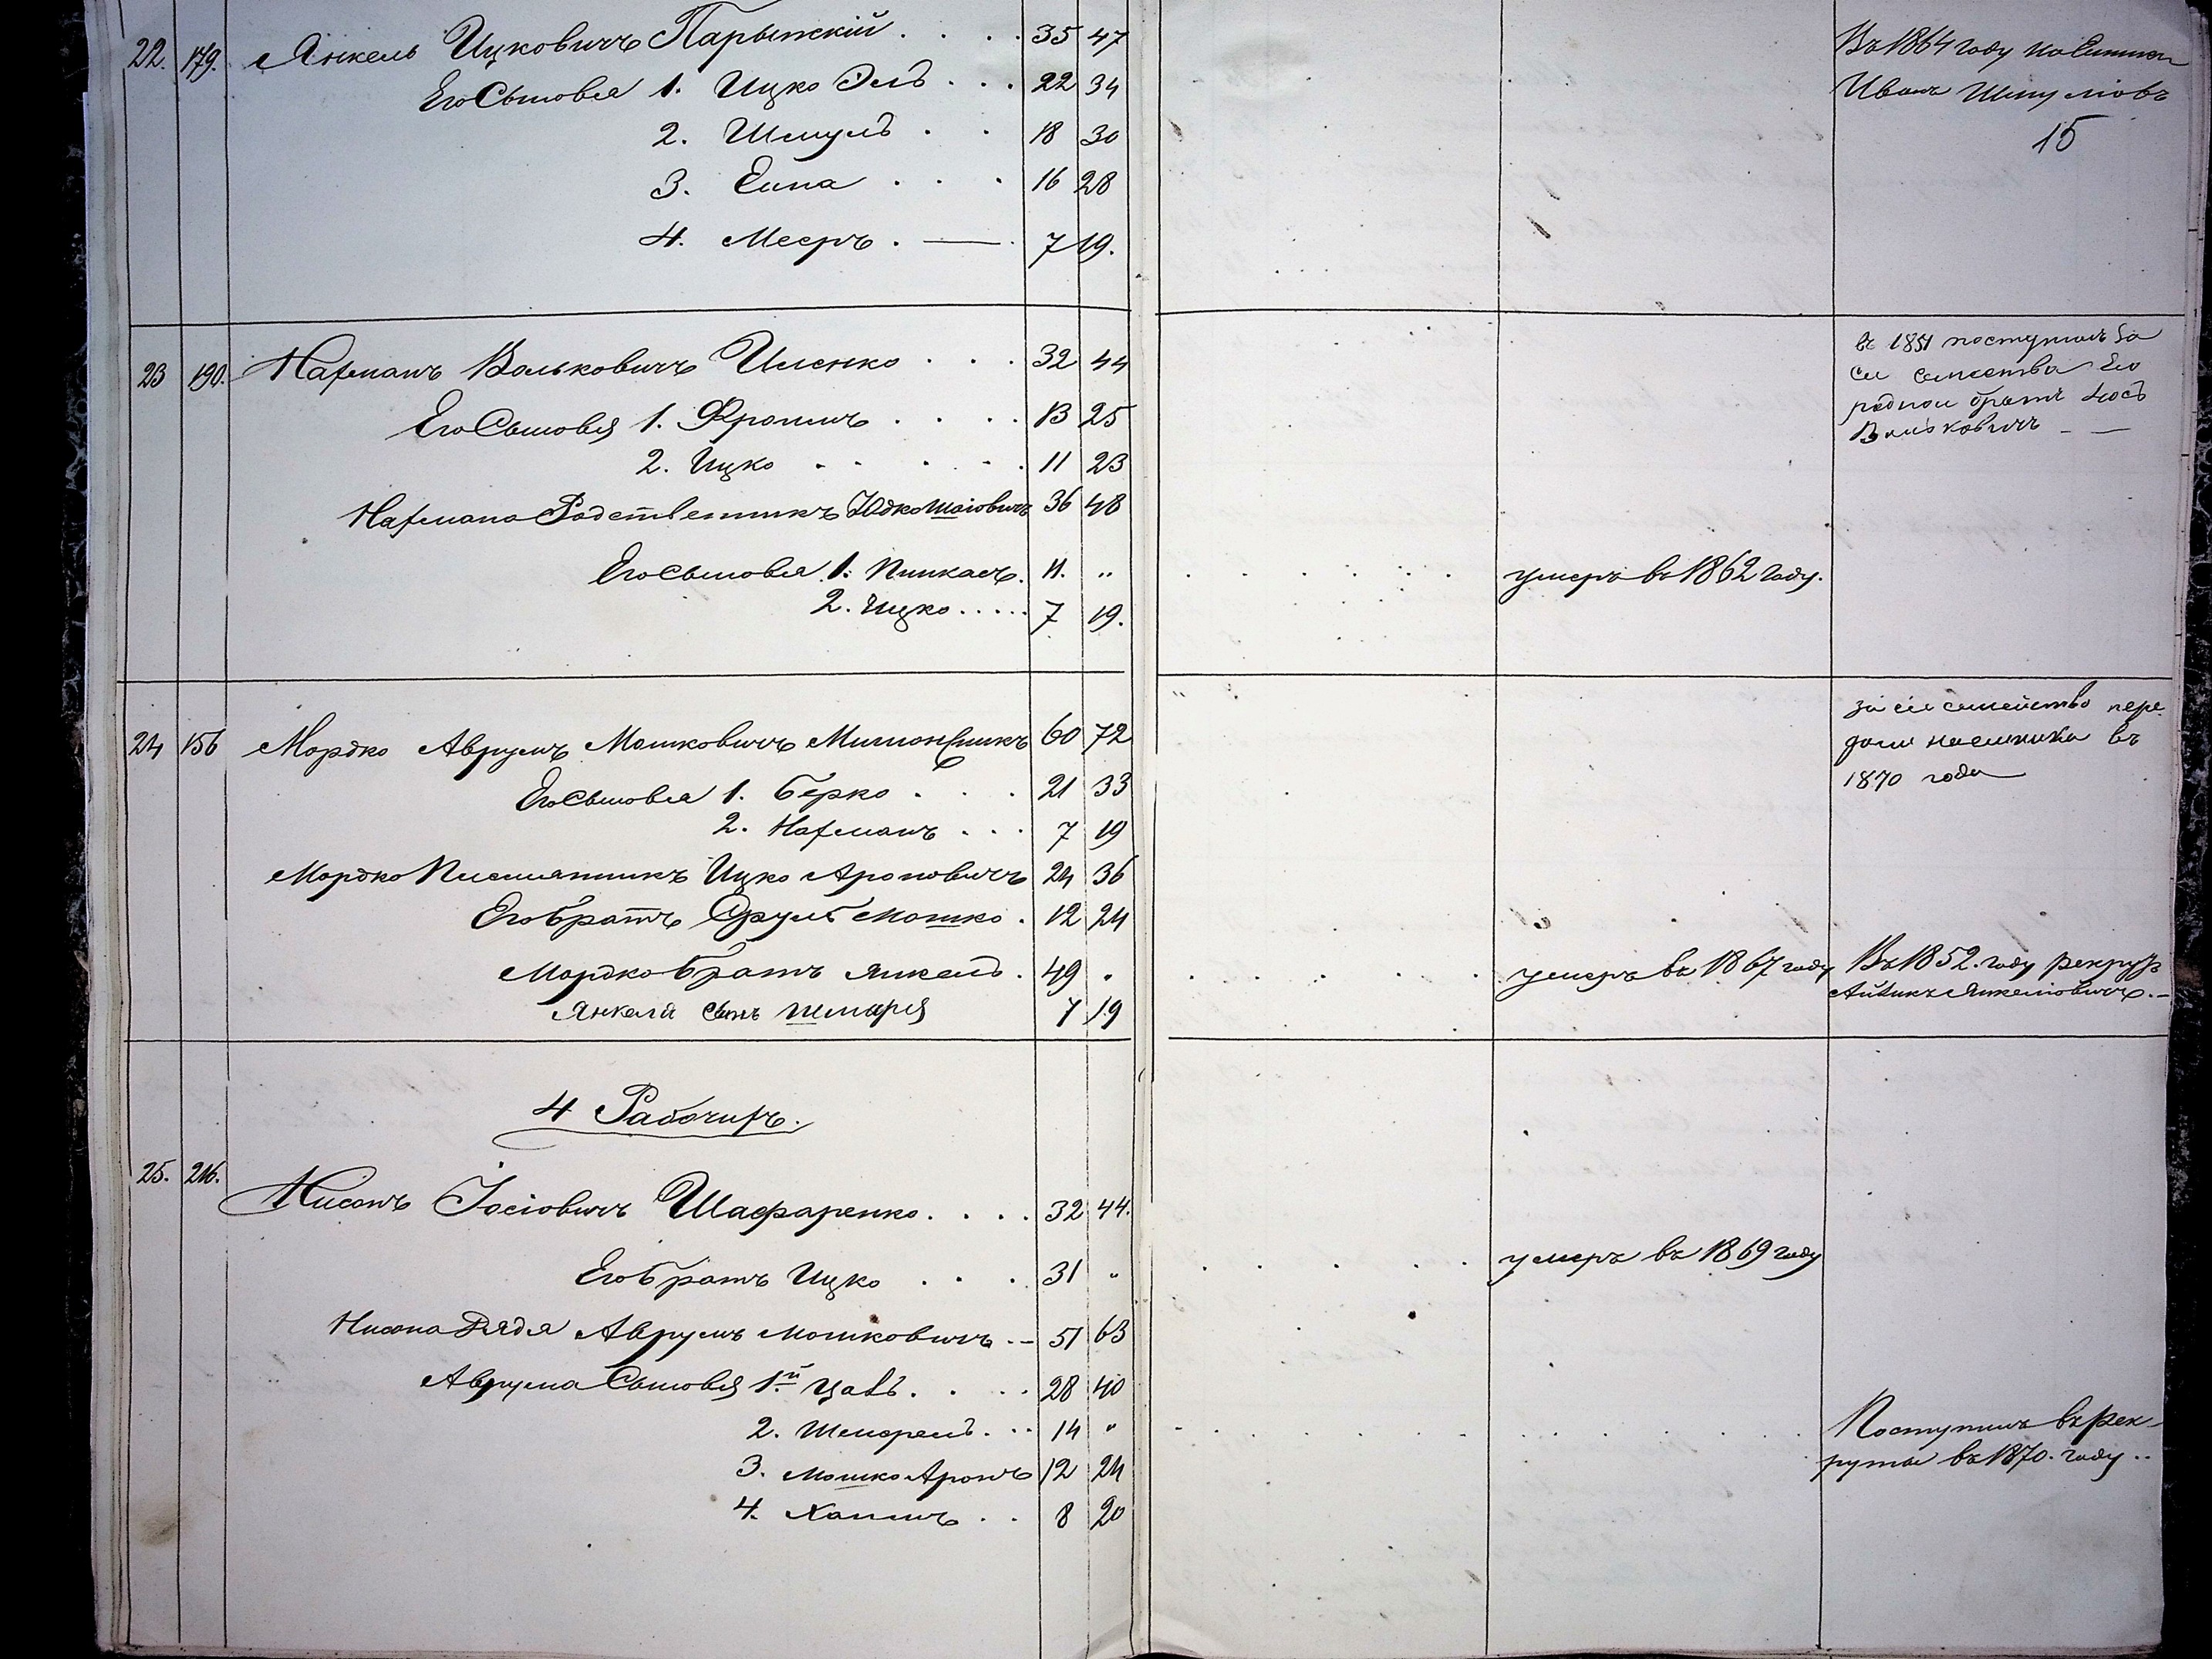 22. 179. Янкель Ицковичъ Парыжскій . . . . 35 47
Его Сыновья 1. Ицко Эль . . . 22 34
2. Шмуль . . 18 30
3. Елина . . . 16 28
4. Мееръ . — . 7 19.
Въ 1864 году
Иванъ Шмуліовъ
15
23 190. Нахманъ Вольковичъ Иленко . . . 32 44
Его Сыновья 1. Фроимъ . . . . 13 25
2. Ицко . . . . . 11 23
Нахмана Родственникъ Юдко Шаіовичъ 36 48
Его Сыновья 1. Пинкасъ. 11. „
2. Ицко . . . . . 7 19.
умеръ въ 1862 году.
въ 1851 поступилъ за
сіе семейство Его
родной братъ Іось
Вольковичъ — —
24 156 Мордко Аврумъ Мошковичъ 60 72
Его Сыновья 1. Берко . . . 21 33
2. Нахманъ . . . 7 19
Мордко Племянникъ Ицко Ароновичъ 24 36
Его братъ Сруль Мошко . 12 24
Мордко братъ Янкель . 49 „
Янкеля сынъ Шмаря 7 19
за сіе семейство пере
дали наемника въ
1870 года
умеръ въ 1867 году
Въ 1852. году рекрутъ
Айзикъ Янкеліовичъ. —
4 Рабочихъ.
25. 216. Нисонъ Іосіовичъ Шафаренко . . . . 32 44.
Его братъ Ицко . . . 31 „
умеръ въ 1869 году
Нисона Дядя Аврумъ Мошковичъ . — 51 63
Аврума Сыновья 1.й . . . . 28 40
2. Шмерель . . . 14 „
3. Мошко Аронъ 12 24
4. Хаимъ . . 8 20
Поступилъ въ рек-
руты въ 1870. году . .